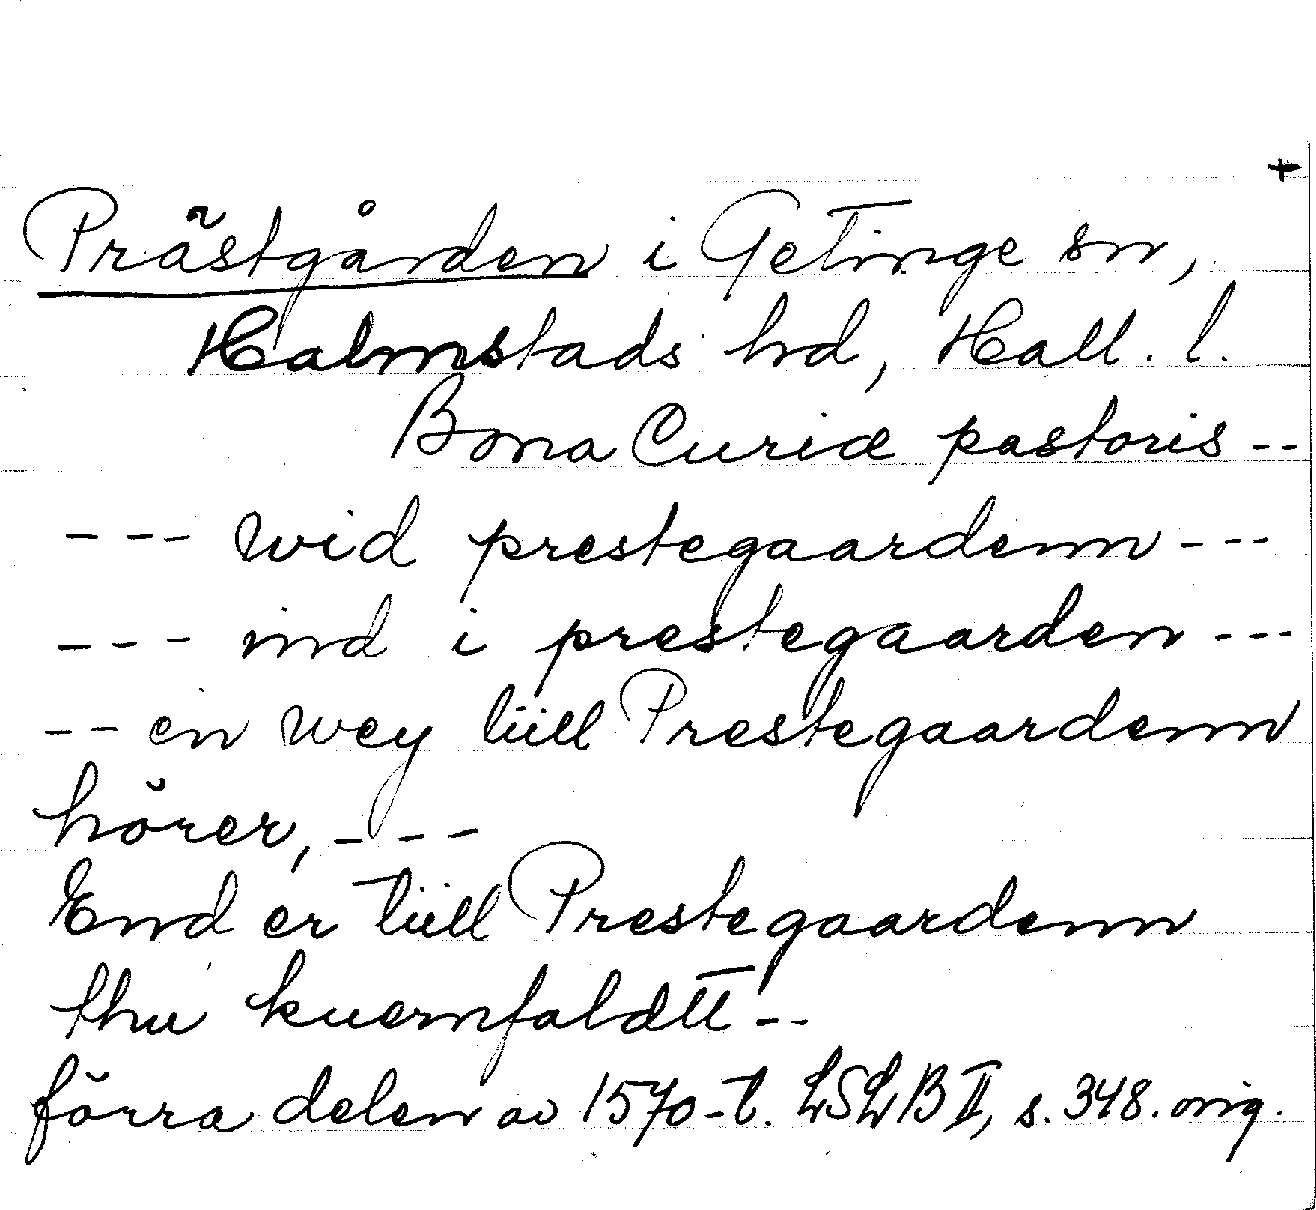 +
Prästgården i Getinge sn,
Halmstads hd, Hall. l.
Bona Curiæ pastoris --
--- wid prestegaardenn ---
--- ind i prestegaarden ---
-- en wey tiill Prestegaardenn
hörer, ---
End er tiill Prestegaardenn
thu kuernfaldtt --
förra delen av 1570-t. LSLB II, s. 348. orig.